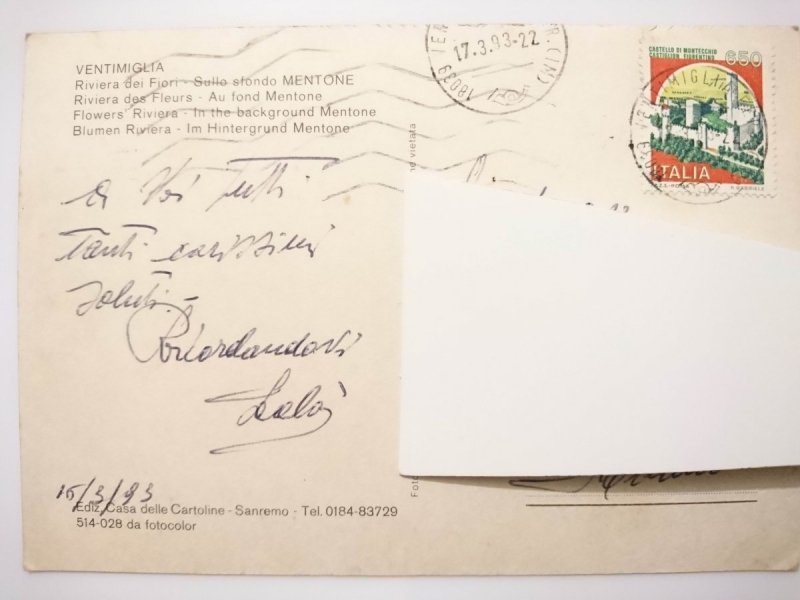 VENTIMIGLIA
Riviera dei Fiori - Sullo sfondo MENTONE
Riviera des Fleurs - Au fond Mentone
Flowers' Riviera - In the background Mentone
Blumen Riviera - Im Hintergrund Mentone
17.3.93-22
18039
CASTELLO DI MONTECCHIO
CASTIGLION FIORENTINO
650
ITALIA
a Voi tutti
Tanti carissimi
saluti.
Ricordandovi
15/3/93
Ediz. Casa delle Cartoline - Sanremo - Tel. 0184-83729
514-028 da fotocolor
vietata